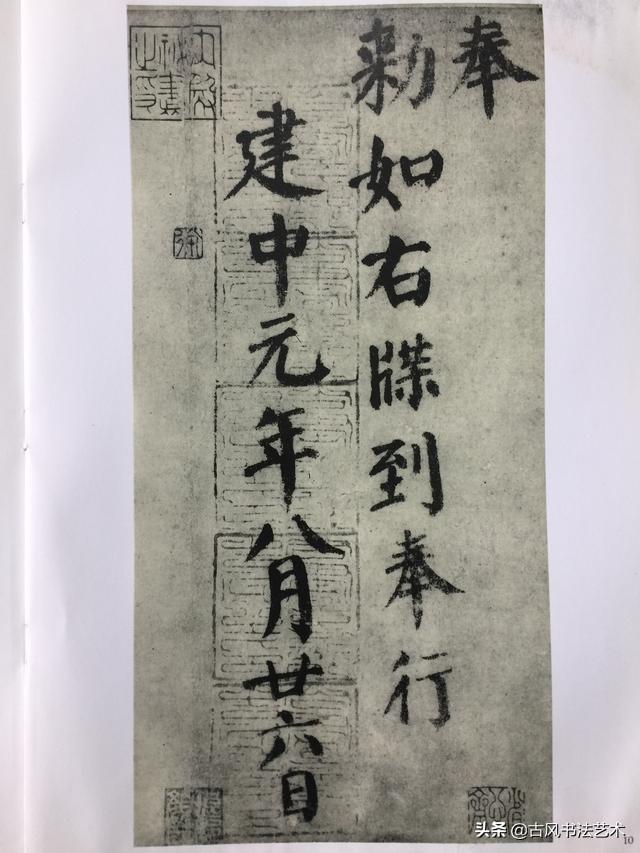 奉
勑如右牒到奉行
建中元年八月廿六日
头条 @古风书法艺术
10